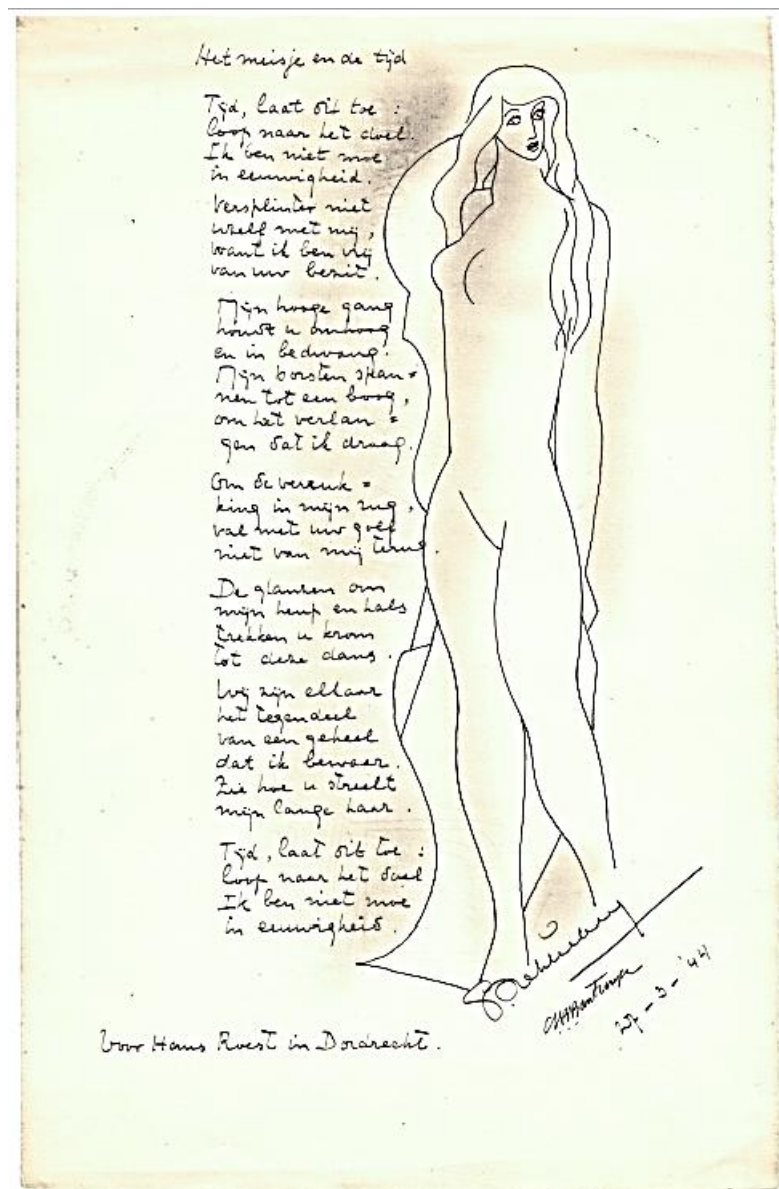 Het meisje en de tijd
Tijd, laat dit toe :
loop naar het doel.
Ik ben niet moe
in eeuwigheid.
Versplinter niet
uzelf met mij,
want ik ben vrij
van uw bezit.
Mijn hooge gang
houdt u omhoog
en in bedwang.
Mijn borsten span=
nen tot een boog,
om het verlan =
gen dat ik draag.
Om de verruk =
king in mijn rug,
val met uw golf
niet van mij terug.
De glansen om
mijn heup en hals
trekken u krom
tot deze dans.
Wij zijn elkaar
het tegendeel
van een geheel
dat ik bewaar.
Zie hoe u streelt
mijn lange haar.
Tijd, laat dit toe :
loop naar het doel
Ik ben niet moe
in eeuwigheid.
G. Achterberg
27-3-'44
Voor Hans Roest in Dordrecht.